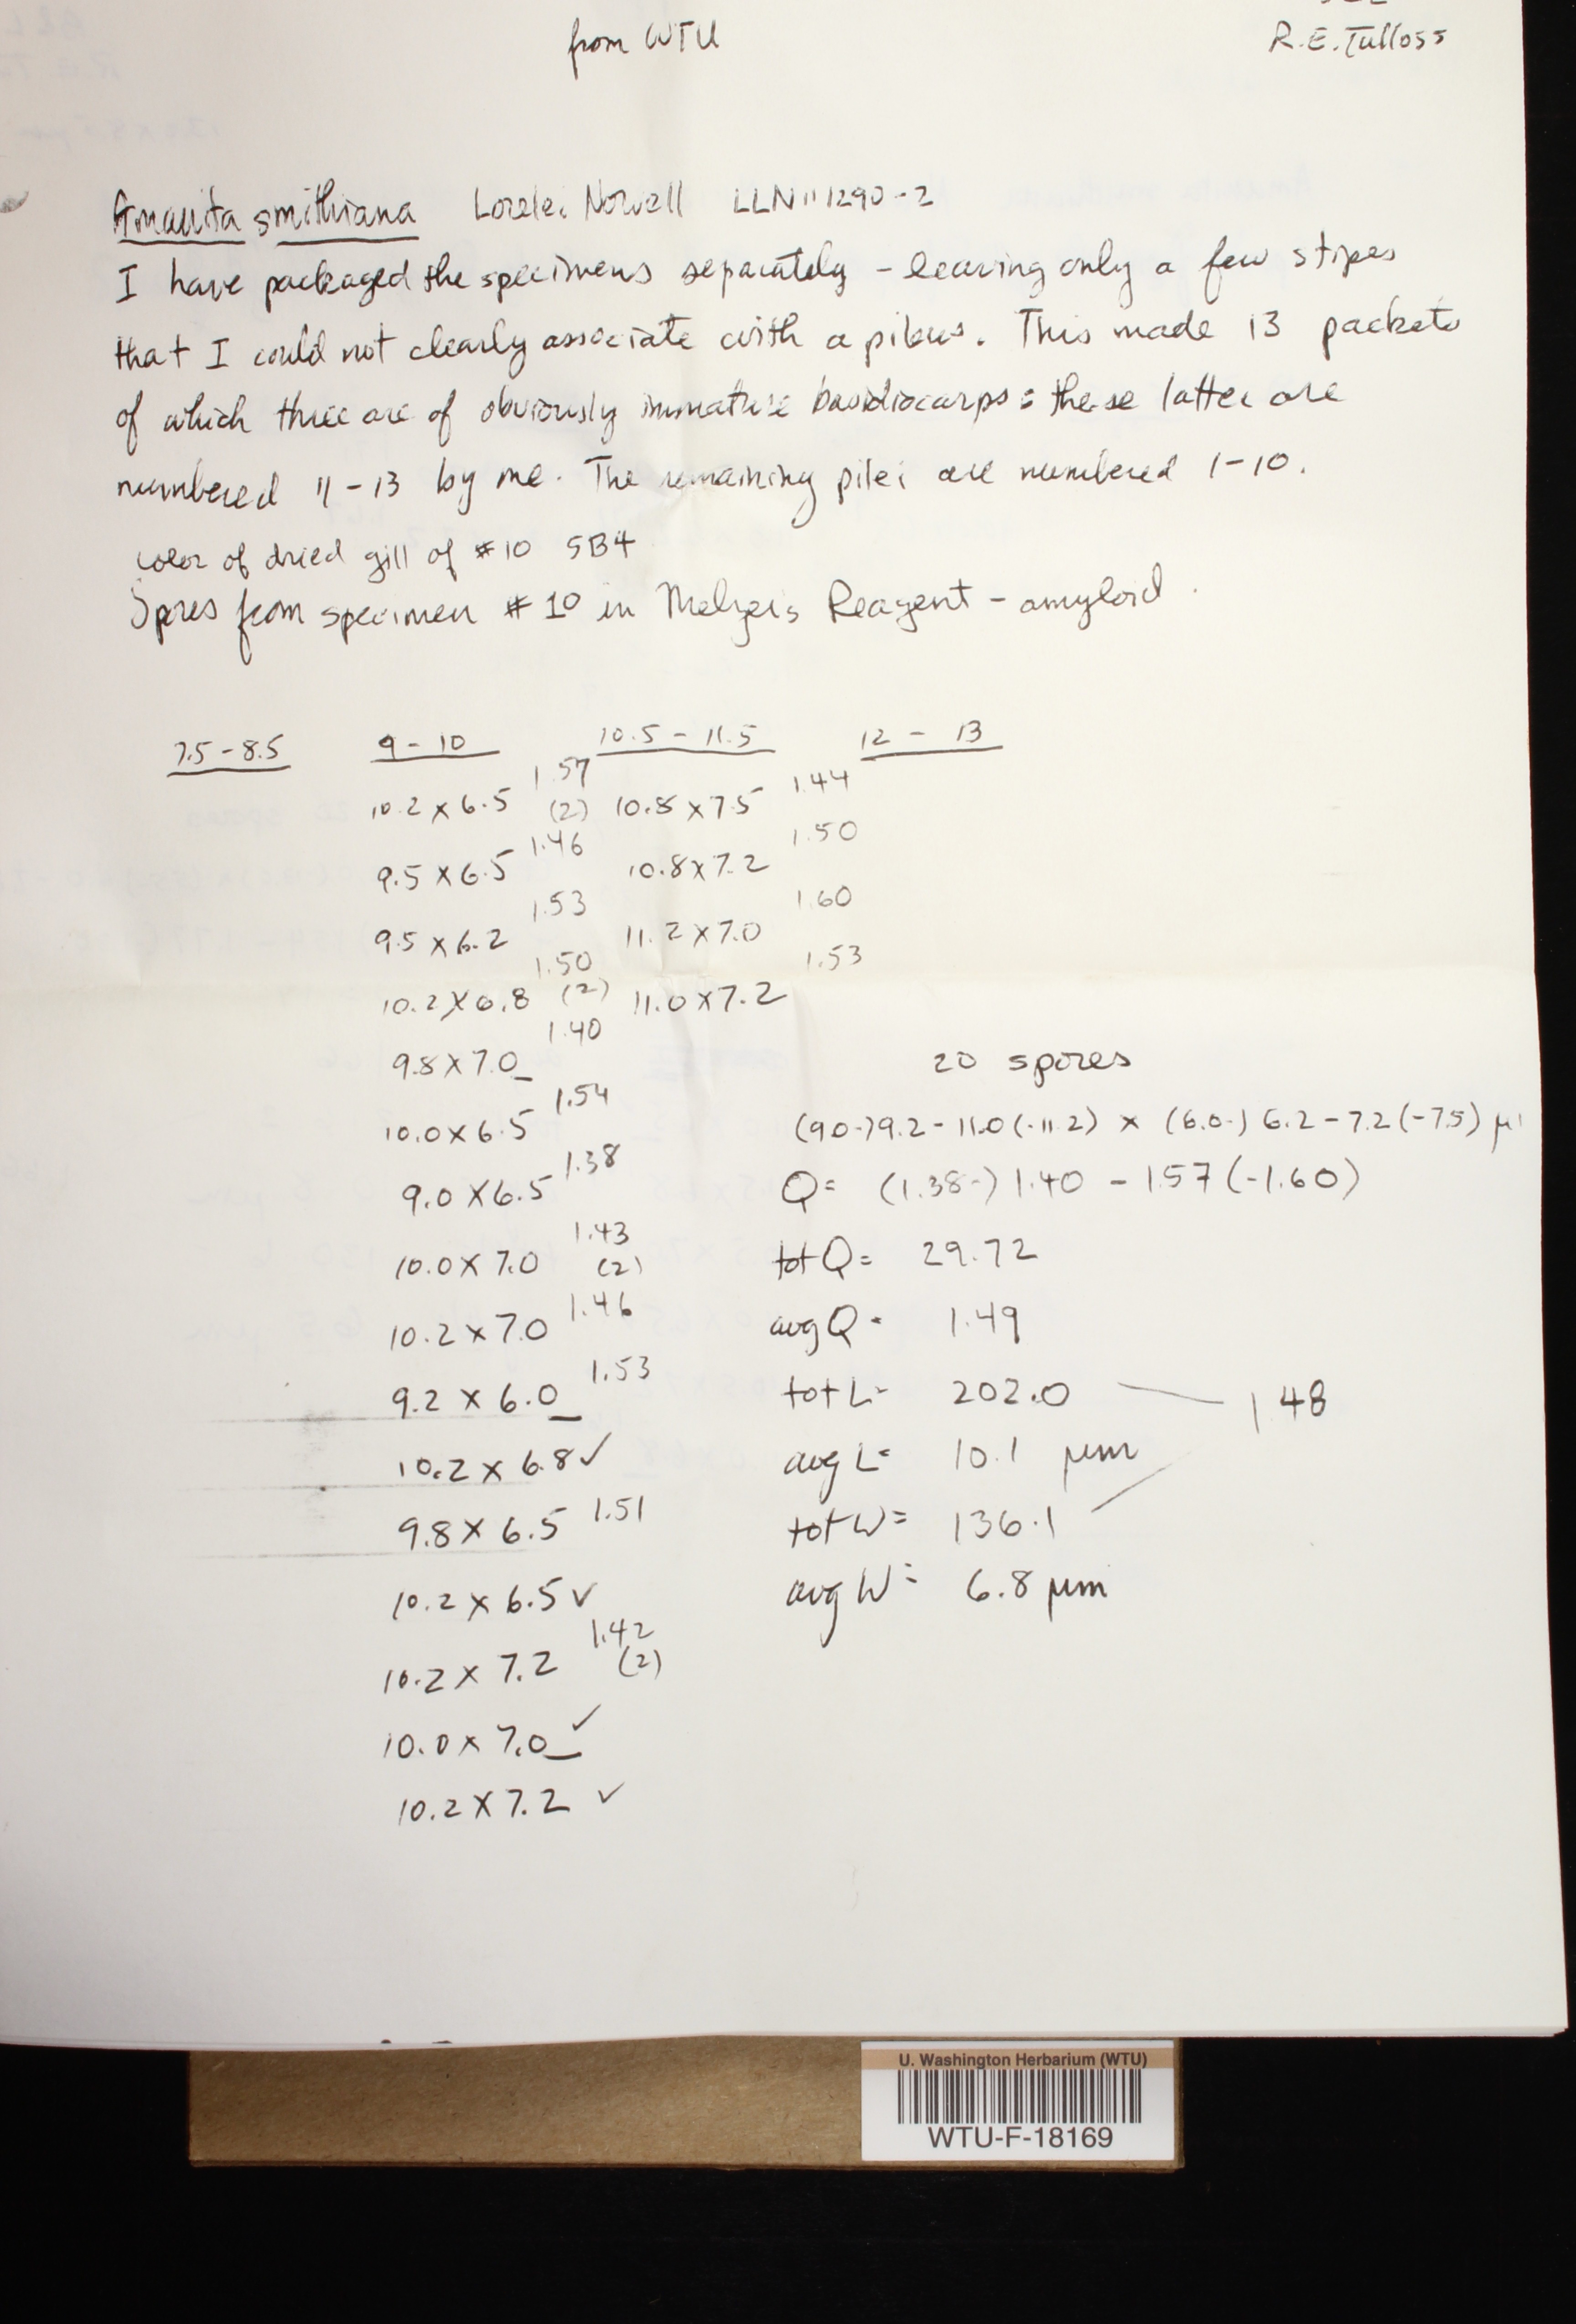 from WTU
R.E. Tulloss
Amanita smithiana Lorelei Norvell LLN111290-2
I have packaged the specimens separately - leaving only a few stipes
that I could not clearly associate with a pileus. This made 13 packets
of which three are of obviously immature basidiocarps: these latter are
numbered 11-13 by me. The remaining pilei are numbered 1-10.
color of dried gill of #10 5B4
Spores from specimen #10 in Melzer's Reagent - amyloid.
7.5-8.5 9-10 10.5-11.5 12-13
10.2 x 6.5 1.57 (2) 10.8 x 7.5 1.44
9.5 x 6.5 1.46 10.8 x 7.2 1.50
9.5 x 6.2 1.53 11.2 x 7.0 1.60
10.2 x 6.8 1.50 (2) 11.0 x 7.2 1.53
9.8 x 7.0 1.40
10.0 x 6.5 1.54
9.0 x 6.5 1.38
10.0 x 7.0 1.43 (2)
10.2 x 7.0 1.46
9.2 x 6.0 1.53
10.2 x 6.8 ✓
9.8 x 6.5 1.51
10.2 x 6.5 ✓
10.2 x 7.2 1.42 (2)
10.0 x 7.0 ✓
10.2 x 7.2 ✓
20 spores
(9.0-) 9.2 - 11.0 (-11.2) x (6.0-) 6.2 - 7.2 (-7.5) µ
Q = (1.38-) 1.40 - 1.57 (-1.60)
tot Q = 29.72
avg Q = 1.49
tot L = 202.0 1.48
avg L = 10.1 µm
tot W = 136.1
avg W = 6.8 µm
U. Washington Herbarium (WTU)
WTU-F-18169